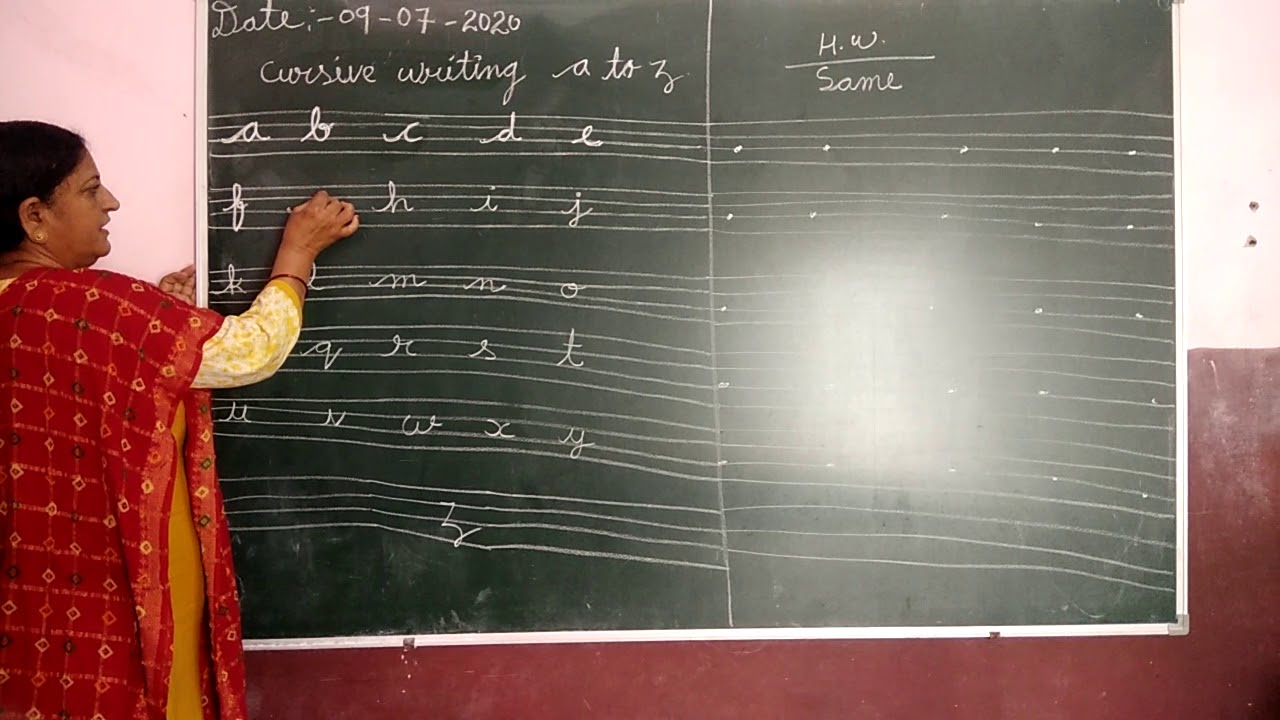 Date:-09-07-2020
cursive writing a to z
a b c d e
f h i j
k l m n o
q r s t
u v w x y
z
H.W.
Same